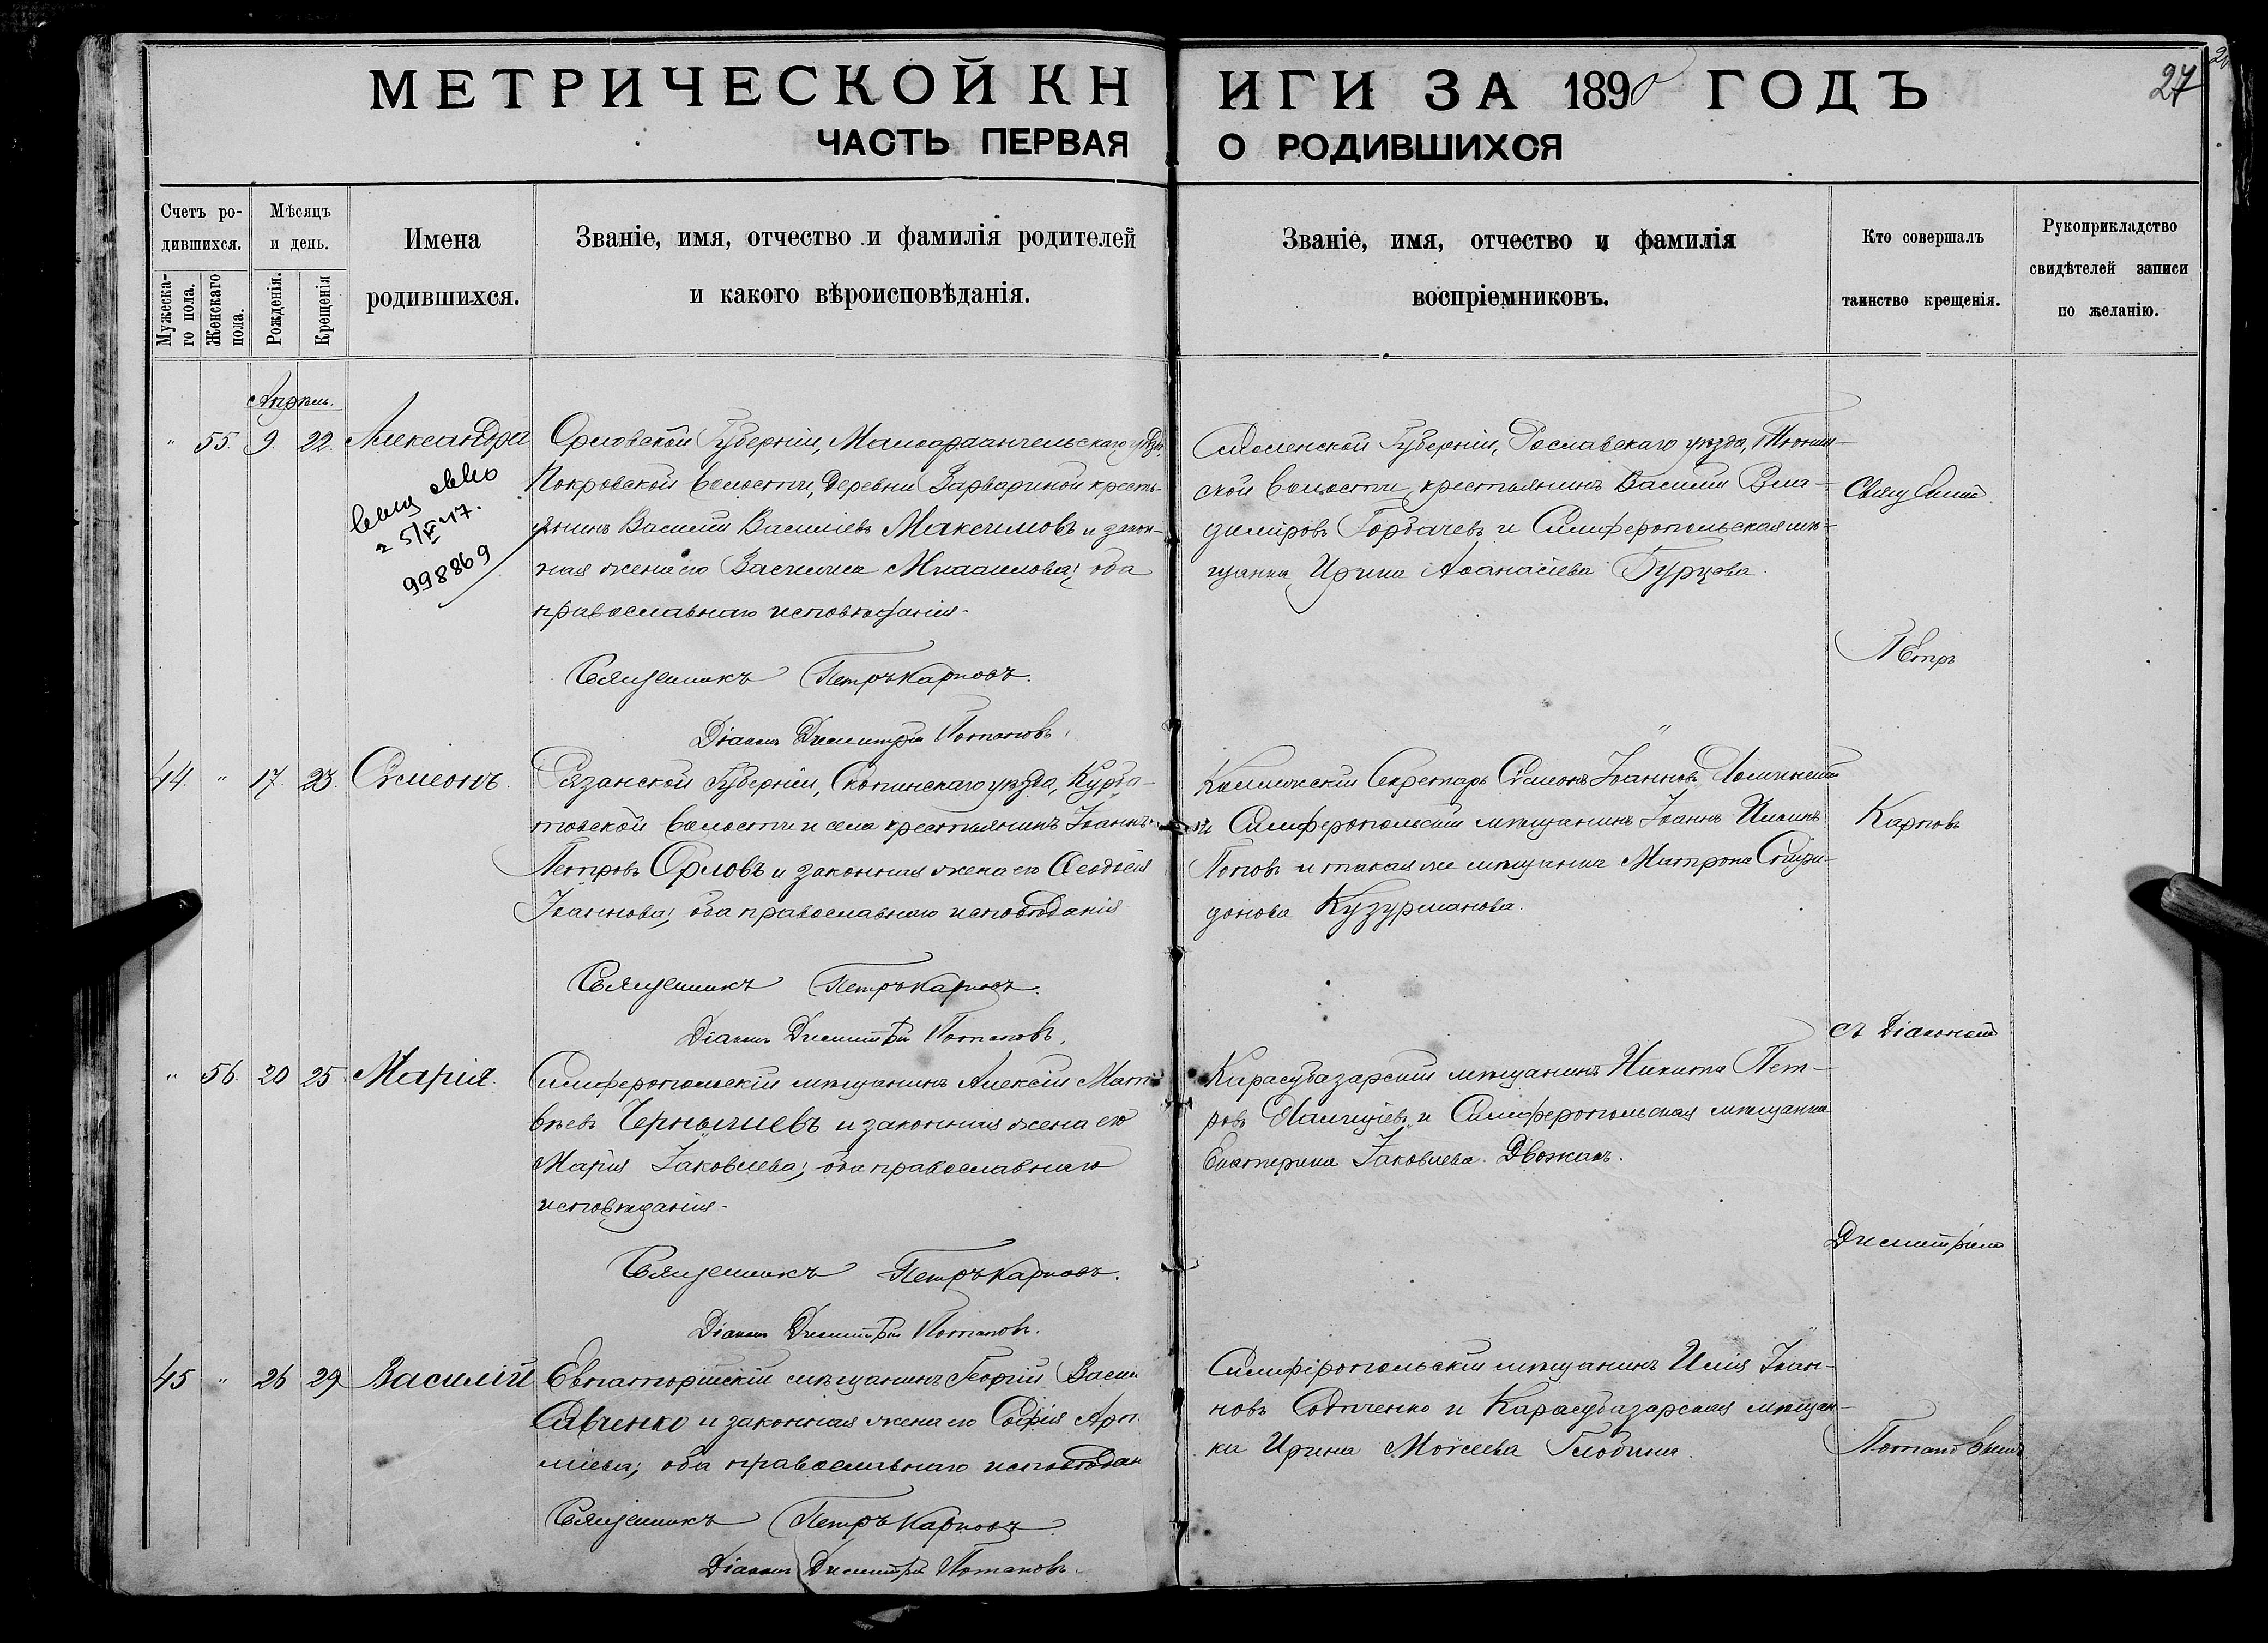 МЕТРИЧЕСКОЙ КНИГИ ЗА 1890 ГОДЪ
27
ЧАСТЬ ПЕРВАЯ О РОДИВШИХСЯ
Счетъ ро-
дившихся.
Мужеска-
го пола.
Женскаго
пола.
Мѣсяцъ
и день.
Рожденія.
Крещенія
Имена
родившихся.
Званіе, имя, отчество и фамилія родителей
и какого вѣроисповѣданія.
Званіе, имя, отчество и фамилія
воспріемниковъ.
Кто совершалъ
таинство крещенія.
Рукоприкладство
свидѣтелей записи
по желанію.
Апрѣль.
" 55. 9. 22. Александра
2 5/VI 47.
998869
Орловской Губерніи, Малоархангельскаго уѣзда,
Покровской волости, деревни Варвариной кресть-
янинъ Василій Василіевъ Максимовъ и закон-
ная жена его Василиса Михаилова; оба
православнаго исповѣданія.
Священникъ Петръ Карповъ.
Діаконъ Димитрій Потаповъ.
Смоленской Губерніи, Рославскаго уѣзда,
ской волости, крестьянинъ Василій Вла-
диміровъ Горбачевъ и Симферопольская мѣ-
щанка Ирина Аѳанасіева Бурцова.
44. " 17. 23. Сѵмеонъ.
Рязанской Губерніи, Скопинскаго уѣзда, Курба-
товской волости и села крестьянинъ Іоаннъ
Петровъ Орловъ и законная жена его Ѳеодосія
Іоаннова; оба православнаго исповѣданія
Священникъ Петръ Карповъ.
Діаконъ Димитрій Потаповъ.
Коллежскій Секретарь Сѵмеонъ Іоанновъ
и Симферопольскій мѣщанинъ Іоаннъ Илiинъ
Поповъ и такая же мѣщанка Матрона Спири-
донова Кузурманова.
" 56. 20 25. Марія.
Симферопольскій мѣщанинъ Алексій Мат-
вѣевъ Чернышевъ и законная жена его
Марія Іаковлева; оба православнаго
исповѣданія.
Священникъ Петръ Карповъ.
Діаконъ Димитрій Потаповъ.
Карасубазарскій мѣщанинъ Никита Пет-
ровъ и Симферопольская мѣщанка
Екатерина Іаковлева Двожакъ.
45 " 26 29 Василій
Евпаторійскій мѣщанинъ Георгій Васил
Савченко и законная жена его Софія Арте
міева; оба православнаго исповѣдан
Священникъ Петръ Карповъ
Діаконъ Димитрій Потаповъ.
Симферопольскій мѣщанинъ Илія Іоан-
новъ и Карасубазарская мѣщан-
ка Ирина Моѵсеева Глобина.
Петръ
Карповъ
съ Діакономъ
Димитріемъ
Потаповымъ